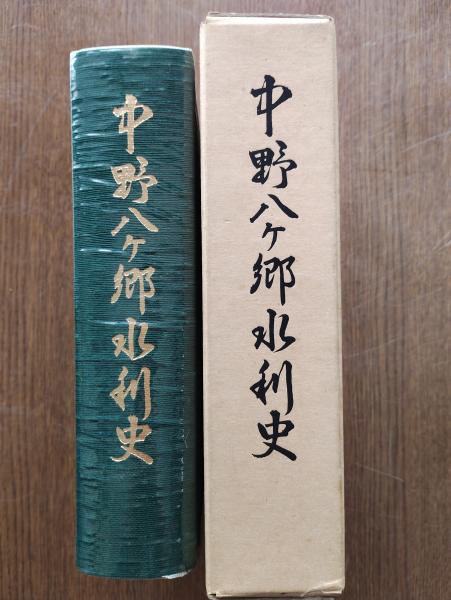 中野八ケ郷水利史
中野八ケ郷水利史